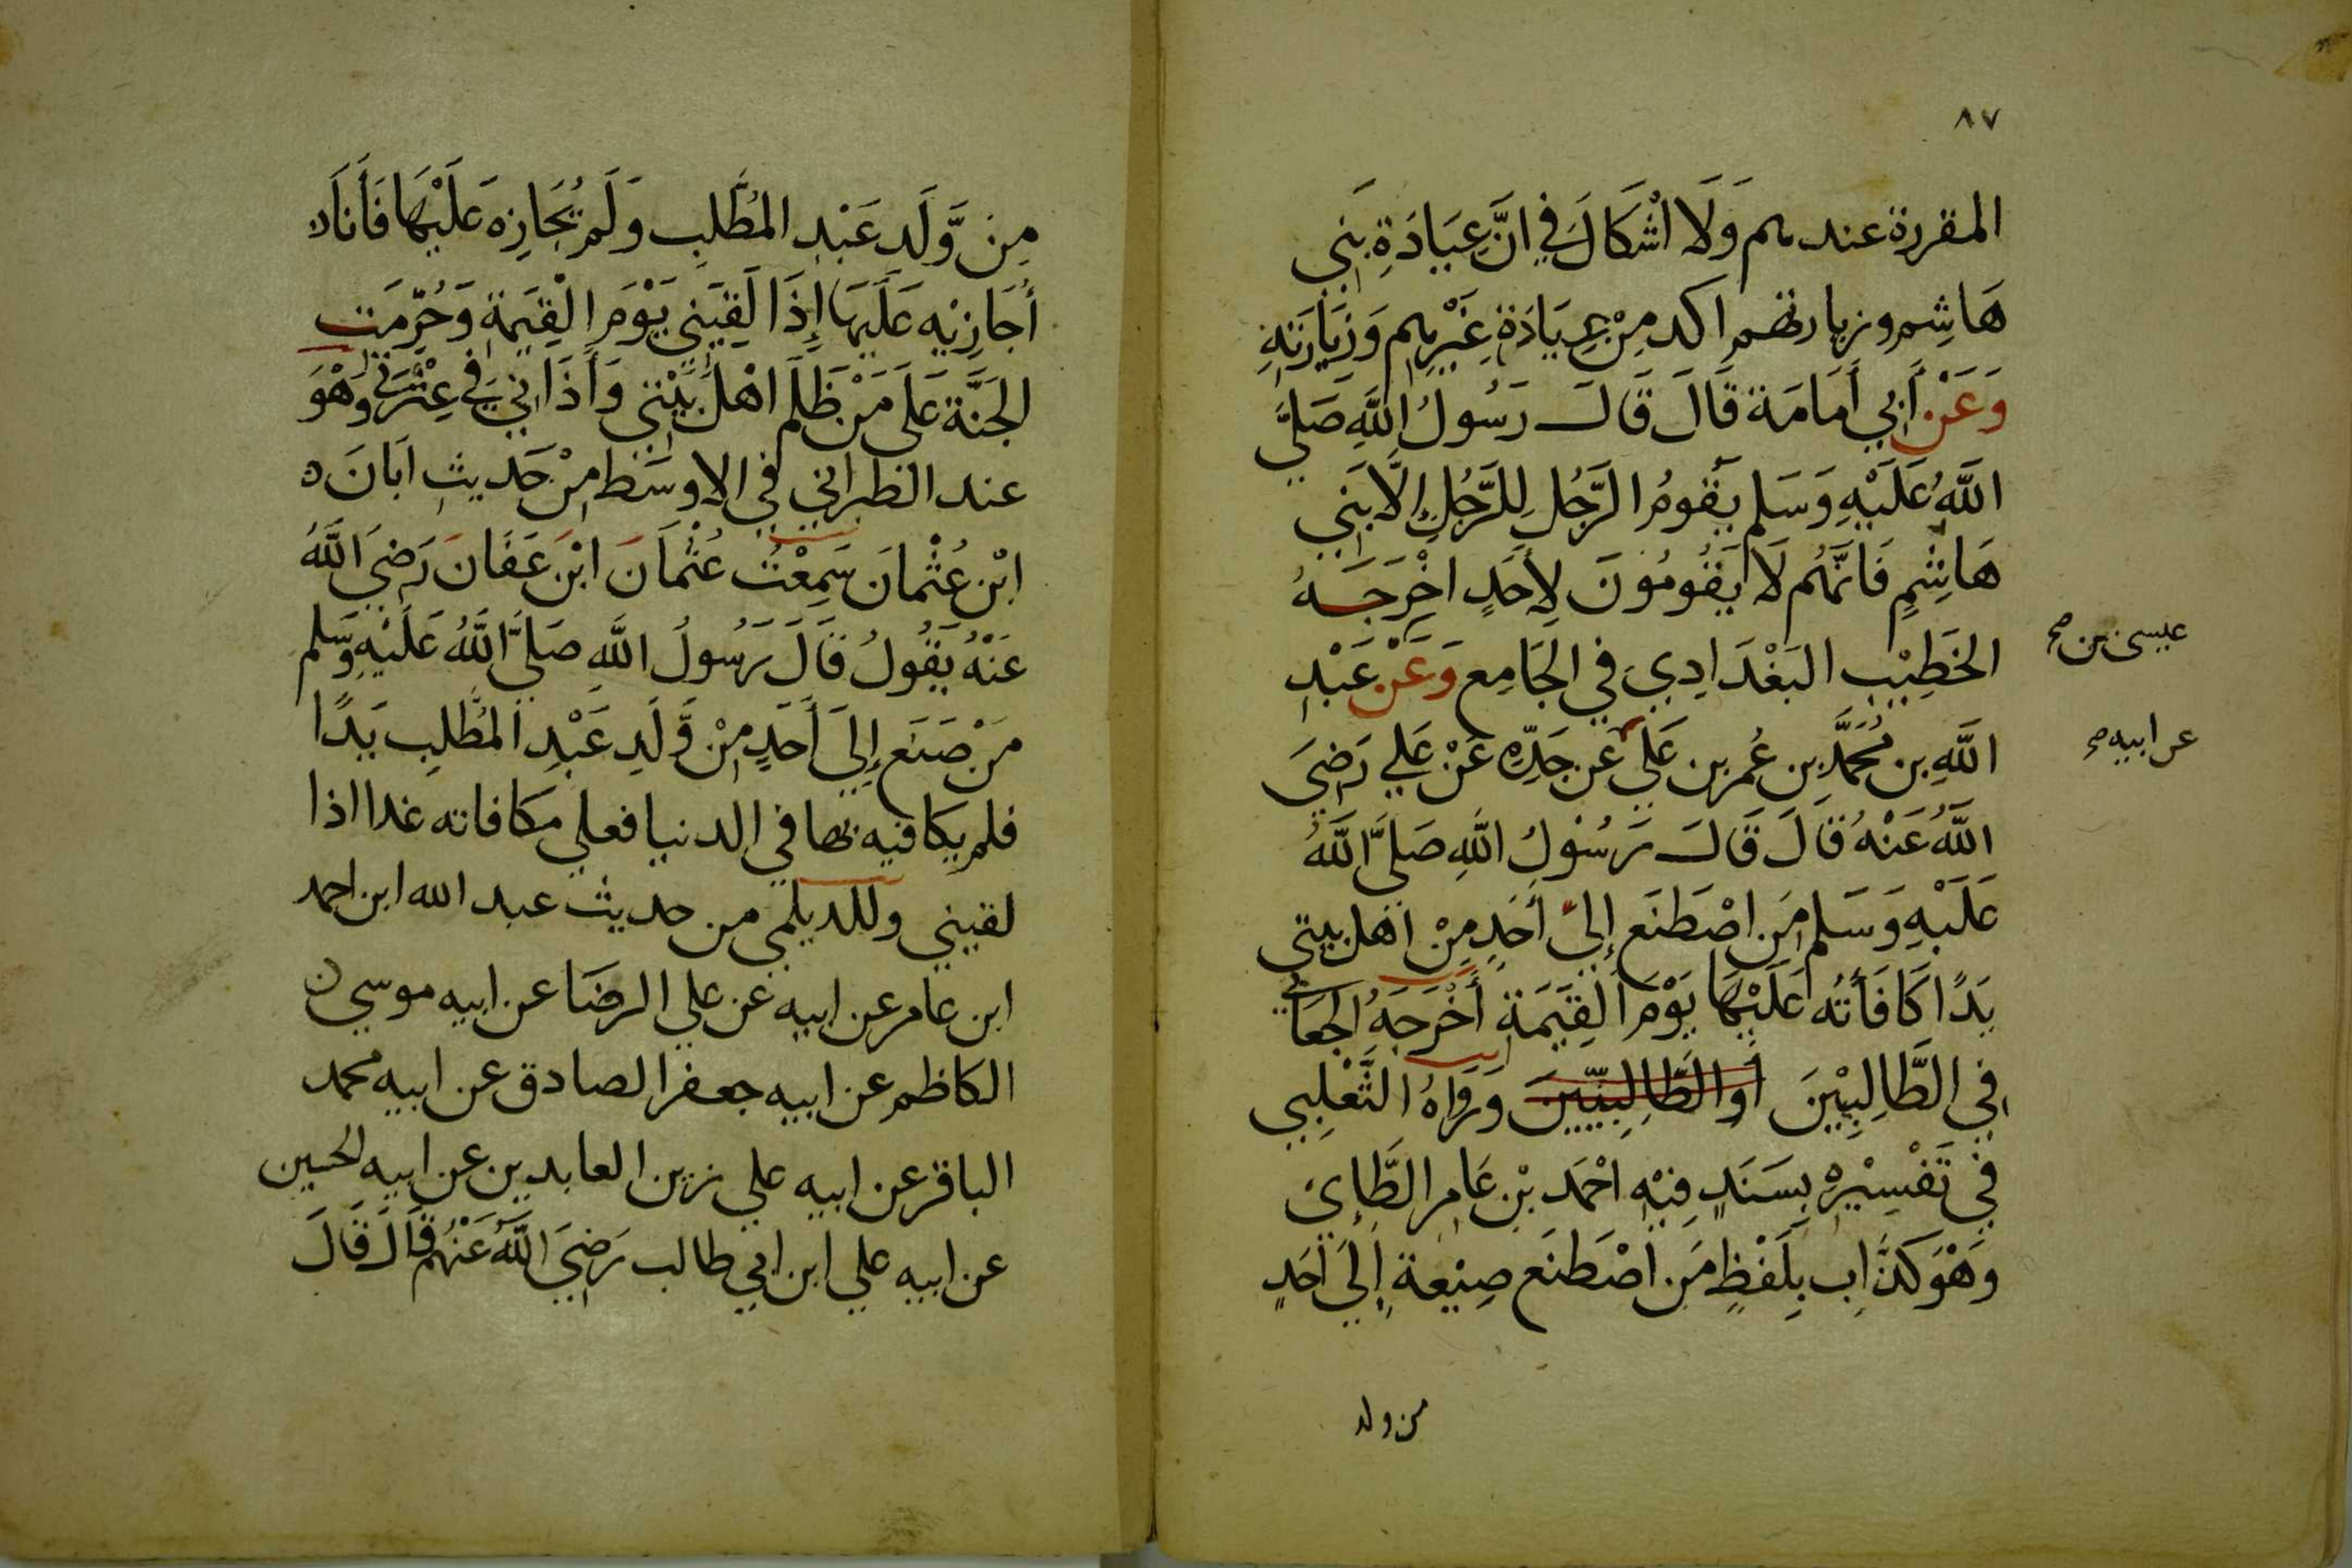 ٨٧
المقررة عندهم وَلَا اشْكَالَ فِي انَّ عِيَادَةِ بَنِي
هَاشِم وزيارتهم اكد مِنْ عِيَادَةِ غَيْرِهِم وَزيَارَتهِ
وَعَنْ أَبِي أَمَامَة قَالَ قَالَ رَسُولُ اللَّهِ صَلَّي
اللَّهُ عَلَيْهِ وَسَلم يَقُومُ الرَّجُل لِلرَّجُلِ إِلَّا بَنِي
هَاشِمٍ فَانَّهُم لَا يَقُومُونَ لِأَحَدٍ اخْرَجَهُ
الخَطِيْب البَغْدَادِي فِي الجَامِع وَعَنْ عَبْدِ
عيسى بن صح
اللَّهِ بن مُحَمَّد بن عُمر بن عَلي عَن جَدِّه عَنْ عَلي رَضِيَ
عن ابيه صح
اللَّهُ عَنْهُ قَالَ قَالَ رَسُوْلُ اللَّهِ صَلَّي اللَّهُ
عَلَيْهِ وَسَلم مَن اصْطَنَع إِلَيَّ أَحَدٍ مِنْ اهْل بيتي
يَدًا كَافَأتُه عَلَيْهَا يَوْمَ القِيَمَةِ أَخْرَجَهُ الجعَابي
فِي الطَّالِبِيْنَ أَو الطَّالِبِيّيْنَ وَرَوَاهُ الثَّعْلِبي
فِي تَفْسِيْرِه بِسَنَدٍ فِيْهِ احْمَد بْن عَامِر الطَّائِي
وَهْوَ كَذَّاب بِلَفْظِ مَن اصْطَنَع صنِيْعة إِلَي أَحَدٍ
من ولد
مِن وَّلَد عَبْدِ المُطَّلِب وَلَم يُجَازِه عَلَيْهَا فَأَنَا
أُجَازِيْهِ عَلَيْهَا إِذَا لَقِيَنِي يَوْمَ الْقِيَمَة وَحُرِّمَت
الجَنَّة عَلَي مَنْ ظَلَم اهْل بَيْتِي وَأَذَانِي فِي عِتْرَتي وهْوَ
عند الطبراني في الاوسَط مِنْ حَديث ابَانَ
ابْن عُثْمانَ سَمِعْتُ عُثْمَانَ ابْنَ عَفَانَ رَضِيَ اللَّهُ
عَنْهُ يَقُولُ قَالَ رَسُولُ اللَّهِ صَلَّي اللَّهُ عَلَيْهِ وَسَلم
مَنْ صَنَع إِلَي أَحَدٍ مِنْ وَّلَدِ عَبْدِ المُطَّلِبِ يَدًا
فلم يكافيه بها في الدنيا فعلي مكافاته غدا اذا
لقيني وللديلمي من حديث عبد الله ابن احمد
ابن عامر عن ابيه عن علي الرضَا عن ابيه موسي
الكاظم عن ابيه جعفر الصادق عن ابيه محمد
الباقر عن ابيه علي زين العابدين عن ابيه الحسين
عن ابيه علي ابن ابي طالب رَضِيَ اللَّهُ عَنْهُم قَالَ قَالَ